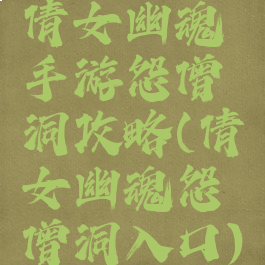 倩女幽魂
手游怨僧
洞攻略(倩
女幽魂怨
僧洞入口)